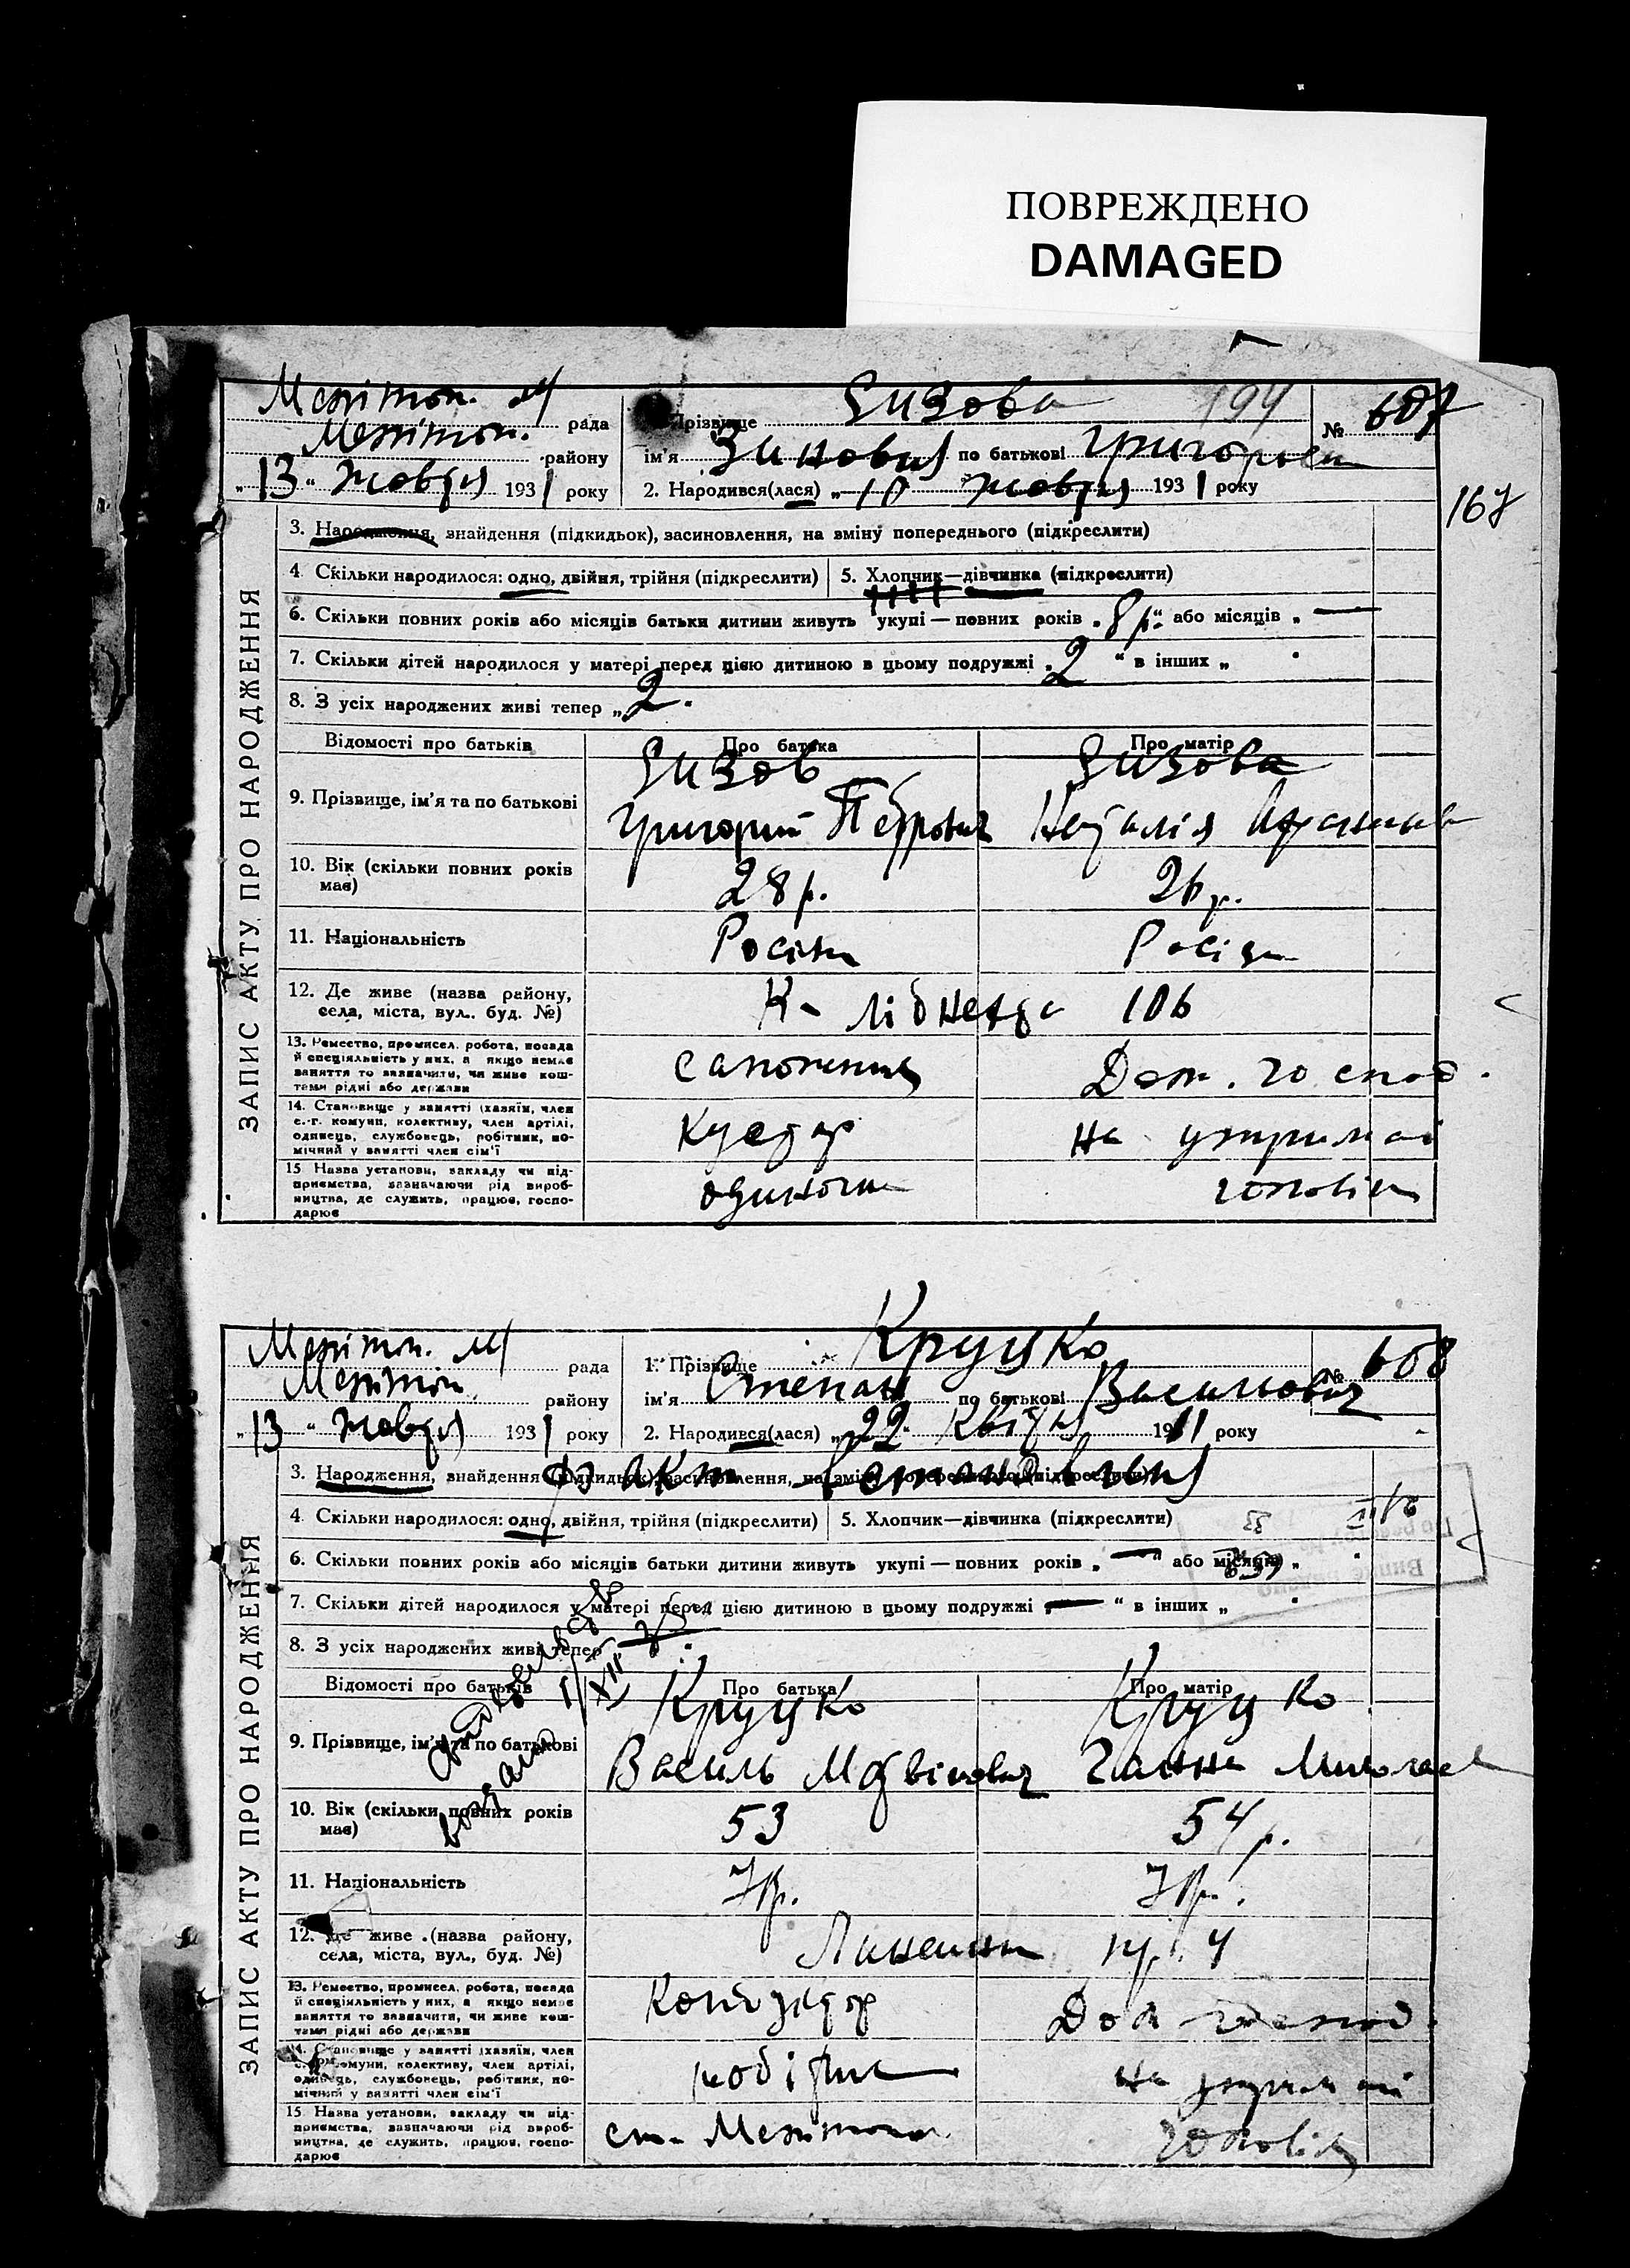 ПОВРЕЖДЕНО
DAMAGED
Мелітоп. М рада
Мелітоп. району
„13“ жовтня 1931 року
Прізвище Зизова 194
№ 607
ім'я Зиновия по батькові Григоровн
2. Народився(лася) „10 жовтня 1931 року
167
ЗАПИС АКТУ ПРО НАРОДЖЕННЯ
3. Народження, знайдення (підкидьок), засиновлення, на зміну попереднього (підкреслити)
4. Скільки народилося: одно, двійня, трійня (підкреслити)
5. Хлопчик—дівчинка (підкреслити)
6. Скільки повних років або місяців батьки дитини живуть укупі — повних років „8 р.“ або місяців „—
7. Скільки дітей народилося у матері перед цією дитиною в цьому подружжі „2“ в інших „
8. З усіх народжених живі тепер „2.
Відомості про батьків Про батька Про матір
9. Прізвище, ім'я та по батькові
Зизов Зизова
Григорий Петрович Наталія
10. Вік (скільки повних років має) 28 р. 26 р.
11. Національність Росіян Росіян
12. Де живе (назва району, села, міста, вул., буд. №) К. Лібнехта 106
13. Ремество, промисел, робота, посада
й спеціяльність у них, а якщо немає
заняття то зазначити, чи живе кош-
тами рідні або держави
сапожник Дом. господ.
14. Становище у занятті (хазяїн, член
с.-г. комуни, колективу, член артілі,
одинець, службовець, робітник, по-
мічний у занятті член сім'ї
Кустар на утриман
15. Назва установи, закладу чи під-
приємства, зазначаючи рід вироб-
ництва, де служить, працює, госпо-
дарює
одиночка чоловіка
Мелітоп. М рада
Мелітоп. району
„13“ жовтня 1931 року
1. Прізвище Круцко
№ 608
ім'я Степан по батькові Васильович
2. Народився(лася) „22“ Квітня 1911 року
ЗАПИС АКТУ ПРО НАРОДЖЕННЯ
3. Народження, знайдення (підкидьок), засиновлення, на зміну попереднього (підкреслити)
факт
4. Скільки народилося: одно, двійня, трійня (підкреслити)
5. Хлопчик—дівчинка (підкреслити)
6. Скільки повних років або місяців батьки дитини живуть укупі — повних років „—“ або місяців „
7. Скільки дітей народилося у матері перед цією дитиною в цьому подружжі „—“ в інших „
8. З усіх народжених живі тепер
Відомості про батьків Про батька Про матір
9. Прізвище, ім'я та по батькові
Круцко Круцко
Василь Матвійович Ганна Миколаев
10. Вік (скільки повних років має) 53 54 р.
11. Національність Укр. Укр.
12. Де живе (назва району, села, міста, вул., буд. №) 4
13. Ремество, промисел, робота, посада
й спеціяльність у них, а якщо немає
заняття то зазначити, чи живе кош-
тами рідні або держави
Кондуктор Дом господ.
14. Становище у занятті (хазяїн, член
с.-г. комуни, колективу, член артілі,
одинець, службовець, робітник, по-
мічний у занятті член сім'ї
робітник на утриман
15. Назва установи, закладу чи під-
приємства, зазначаючи рід вироб-
ництва, де служить, працює, госпо-
дарює
ст. Мелітополь чоловіка